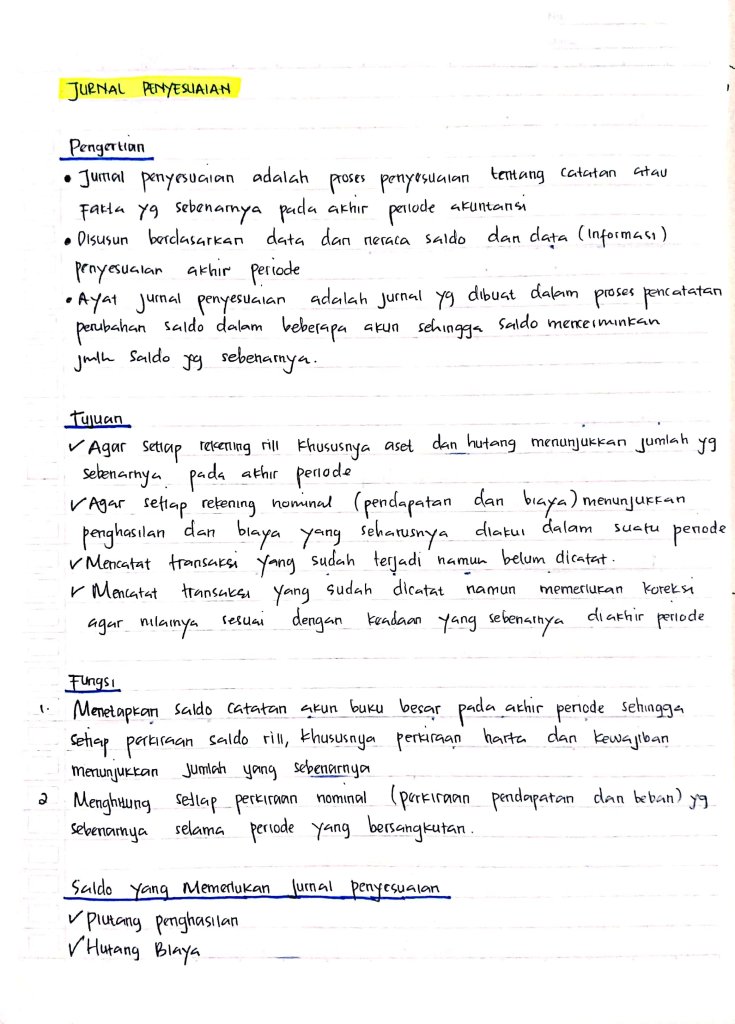 JURNAL PENYESUAIAN
Pengertian
• Jurnal penyesuaian adalah proses penyesuaian tentang catatan atau
Fakta yg sebenarnya pada akhir periode akuntansi
• Disusun berdasarkan data dan neraca saldo dan data (Informasi)
penyesuaian akhir periode
• Ayat jurnal penyesuaian adalah jurnal yg dibuat dalam proses pencatatan
perubahan saldo dalam beberapa akun sehingga saldo mencerminkan
jmlh saldo yg sebenarnya.
Tujuan
✓ Agar setiap rekening riil khususnya aset dan hutang menunjukkan jumlah yg
sebenarnya pada akhir periode
✓ Agar setiap rekening nominal (pendapatan dan biaya) menunjukkan
penghasilan dan biaya yang seharusnya diakui dalam suatu periode
✓ Mencatat transaksi yang sudah terjadi namun belum dicatat.
✓ Mencatat transaksi yang sudah dicatat namun memerlukan koreksi
agar nilainya sesuai dengan keadaan yang sebenarnya diakhir periode
Fungsi
1. Menetapkan saldo catatan akun buku besar pada akhir periode sehingga
setiap perkiraan saldo riil, khususnya perkiraan harta dan kewajiban
menunjukkan jumlah yang sebenarnya
2 Menghitung setiap perkiraan nominal (perkiraan pendapatan dan beban) yg
sebenarnya selama periode yang bersangkutan.
Saldo yang Memerlukan Jurnal penyesuaian
✓ Piutang penghasilan
✓ Hutang Biaya